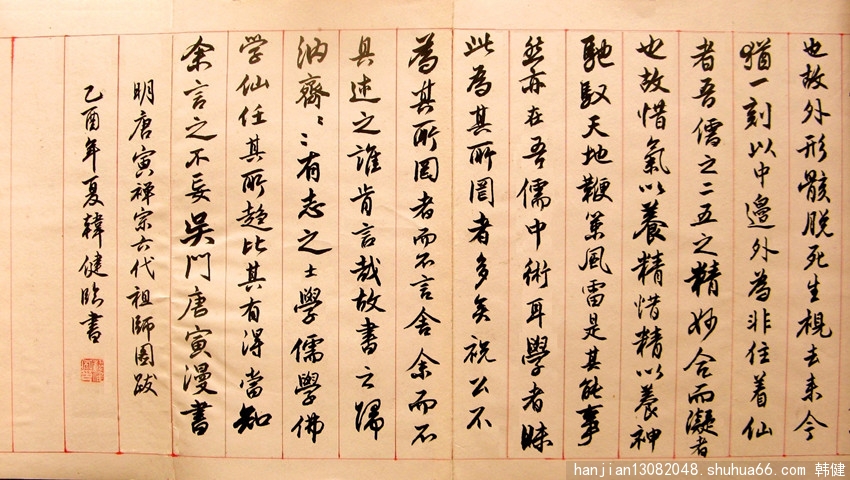 也故外形骸脱死生視去来今
猶一刻以中邊外為非住着仙
者吾儒之二五之精妙合而凝者
也故惜氣以養精惜精以養神
馳馭天地鞭策風雷是其能事
然亦在吾儒中術耳學者昧
此為其所罔者多矣祝公不
為其所罔者而不言舍余而不
具述之誰肯言哉故書之歸
納齋〻〻有志之士學儒學佛
学仙任其所趋比其有得當知
余言之不妄吴門唐寅漫書
明唐寅禅宗六代祖師圖跋
乙酉年夏韓健臨書
hanjian13082048.shuhua66.com 韩健